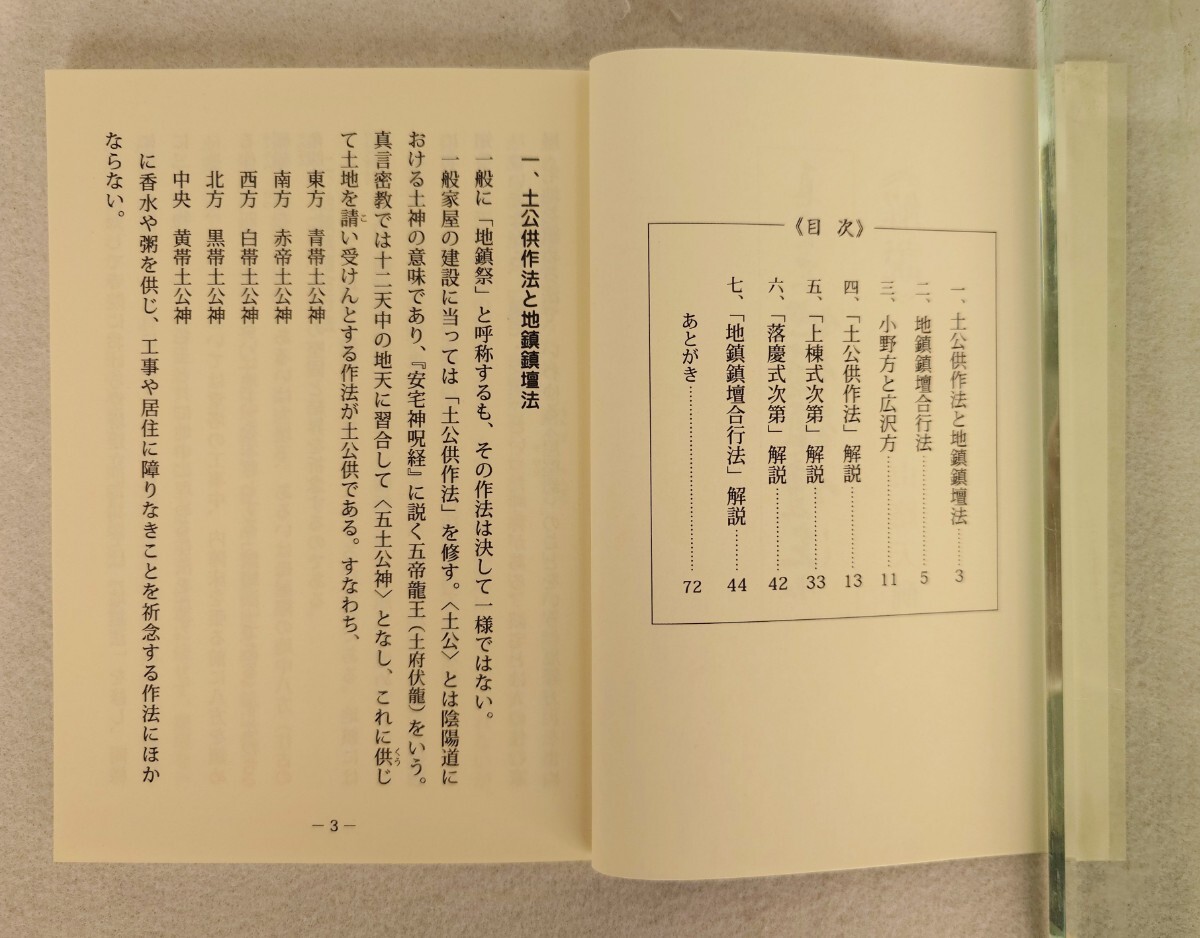 《目 次》
一、土公供作法と地鎮鎮壇法………3
二、地鎮鎮壇合行法………………5
三、小野方と広沢方………………11
四、「土公供作法」解説…………13
五、「上棟式次第」解説…………33
六、「落慶式次第」解説…………42
七、「地鎮鎮壇合行法」解説……44
あとがき…………………………72
一、土公供作法と地鎮鎮壇法
一般に「地鎮祭」と呼称するも、その作法は決して一様ではない。
一般家屋の建設に当っては「土公供作法」を修す。〈土公〉とは陰陽道に
おける土神の意味であり、『安宅神呪経』に説く五帝龍王（土府伏龍）をいう。
真言密教では十二天中の地天に習合して〈五土公神〉となし、これに供じ
て土地を請い受けんとする作法が土公供である。すなわち、
東方　青帯土公神
南方　赤帝土公神
西方　白帯土公神
北方　黒帯土公神
中央　黄帯土公神
に香水や粥を供じ、工事や居住に障りなきことを祈念する作法にほか
ならない。
—3—